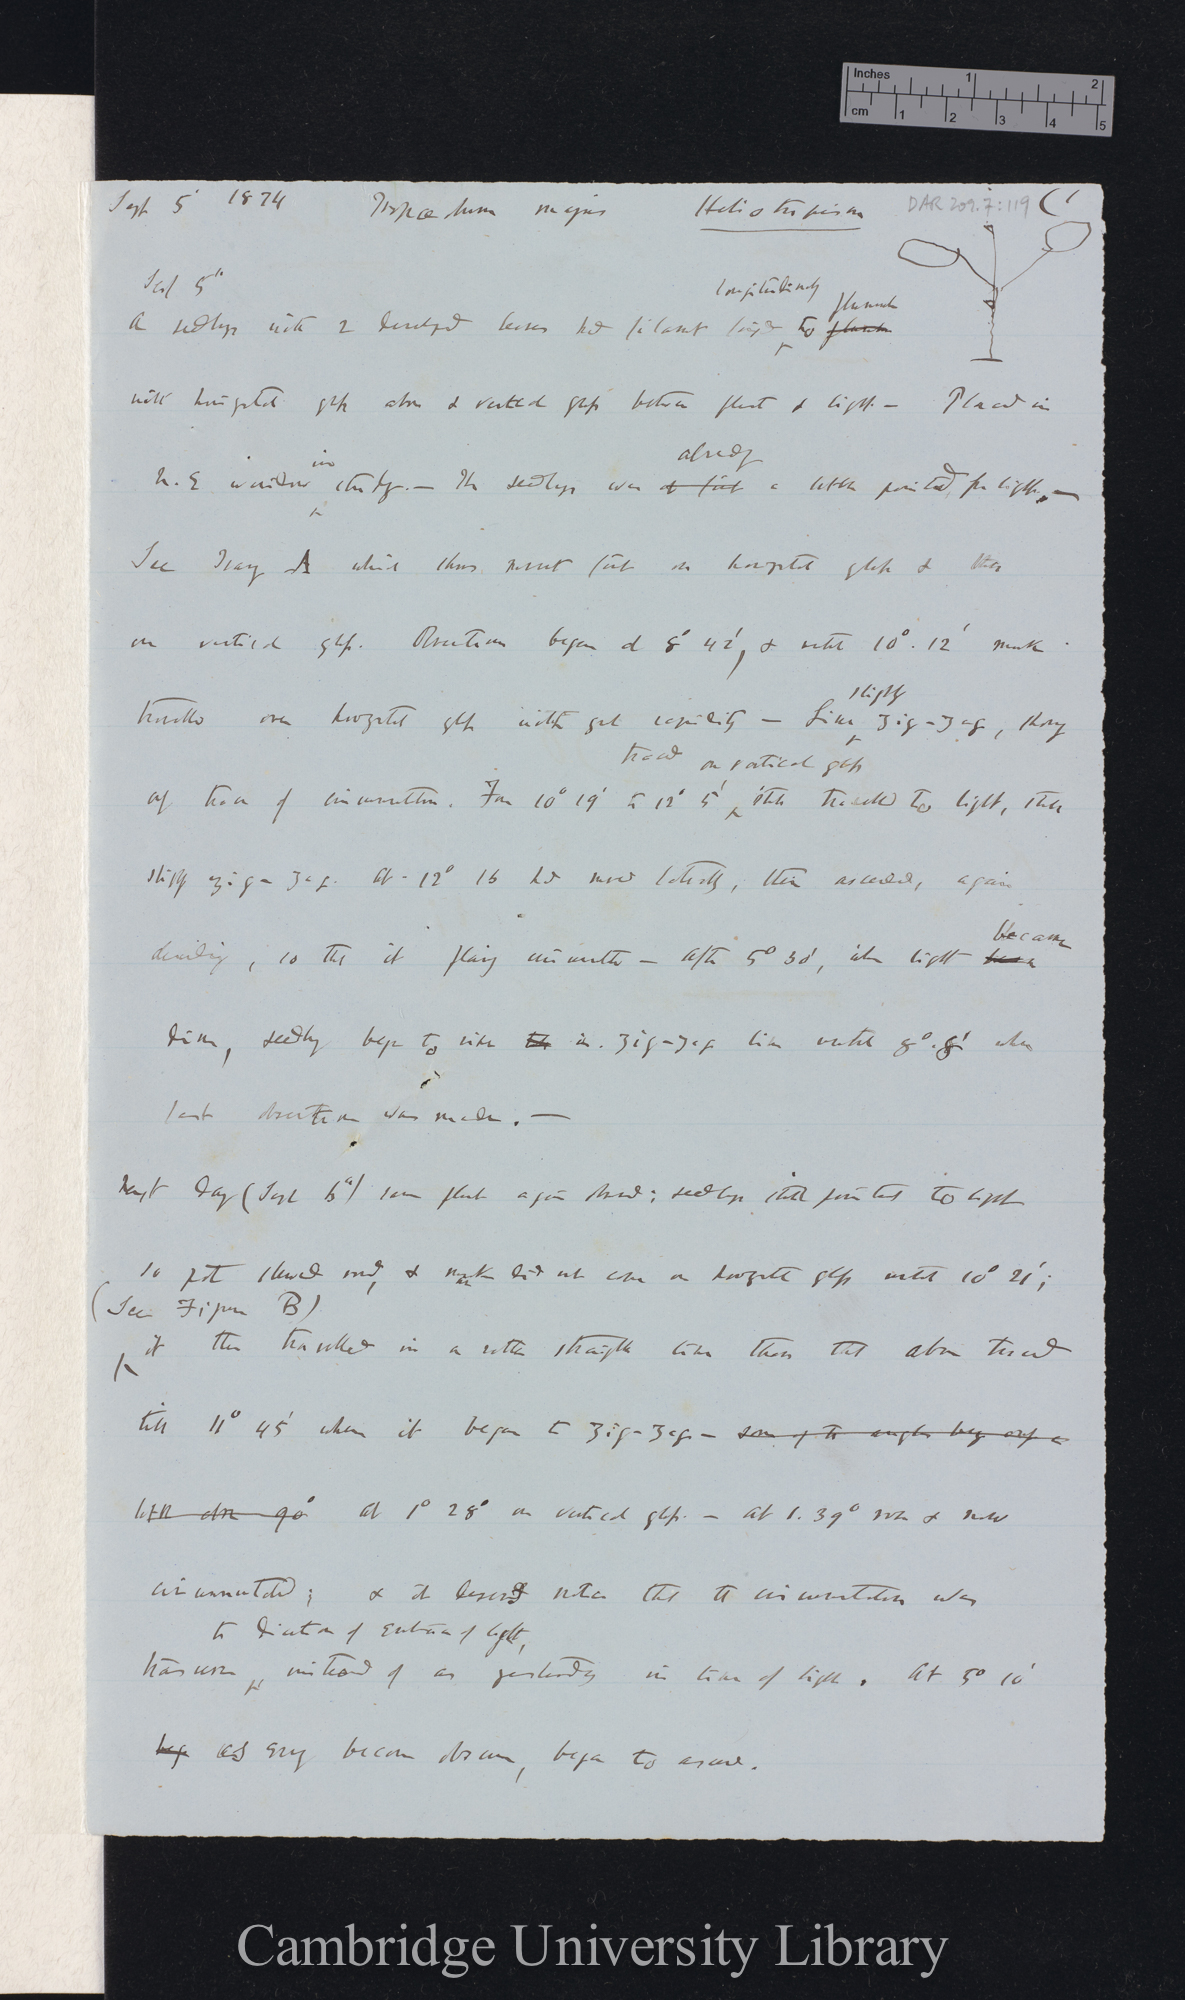 Inches 1 2
cm 1 2 3 4 5
Sept 5' 1874 Tropaeolum majus Heliotropism DAR 209.7:119 (1
Sept 5th
longitudinally
plumule
A seedlings with 2 developed leaves had filament to plumule
with horizontal glass above & vertical glass between plant & light — Placed in
in already
N.E window study. — The seedlings was at first a little pointed to light. —
See Tracing A which shows movt first on horizontal glass & then
on vertical glass. Observations began at 8° 42', & until 10°. 12' mark
slightly
travelled over horizontal glass with great rapidity — Line zig-zag, showing
traced on vertical glass
only trace of circumnutation. From 10° 19' to 12° 5' still travelled to light, still
slightly zig-zag. At 12° 16 had moved laterally, then ascended, again
became
descending, so that it plainly circumnutated — After 5° 30', when light
dim, seedling began to rise in zig-zag line until 8°. 8' when
last observation was made. —
Next Day (Sept 6th) same plant again observed; seedlings still pointed to light
so pot slewed round, & mark did not come on horizontal glass until 10° 21';
(See Figure B)
it then travelled in a rather straighter line than that above traced
till 11° 45' when it began to zig-zag — some of the angles being only a
little above 90° at 1° 28° on vertical glass. — At 1. 39° rose & now
circumnutated; & it deserves notice that the circumnutation was
to direction of entrance of light,
transverse instead of as yesterday in line of light. At 5° 10'
began as evening became obscure, began to ascend.
Cambridge University Library